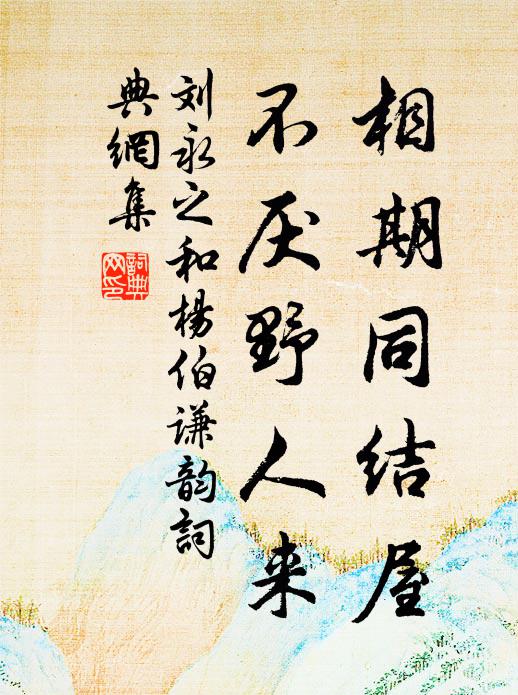 相期同结屋
不厌野人来
刘永之和杨伯谦韵词
典网集
词典
网印